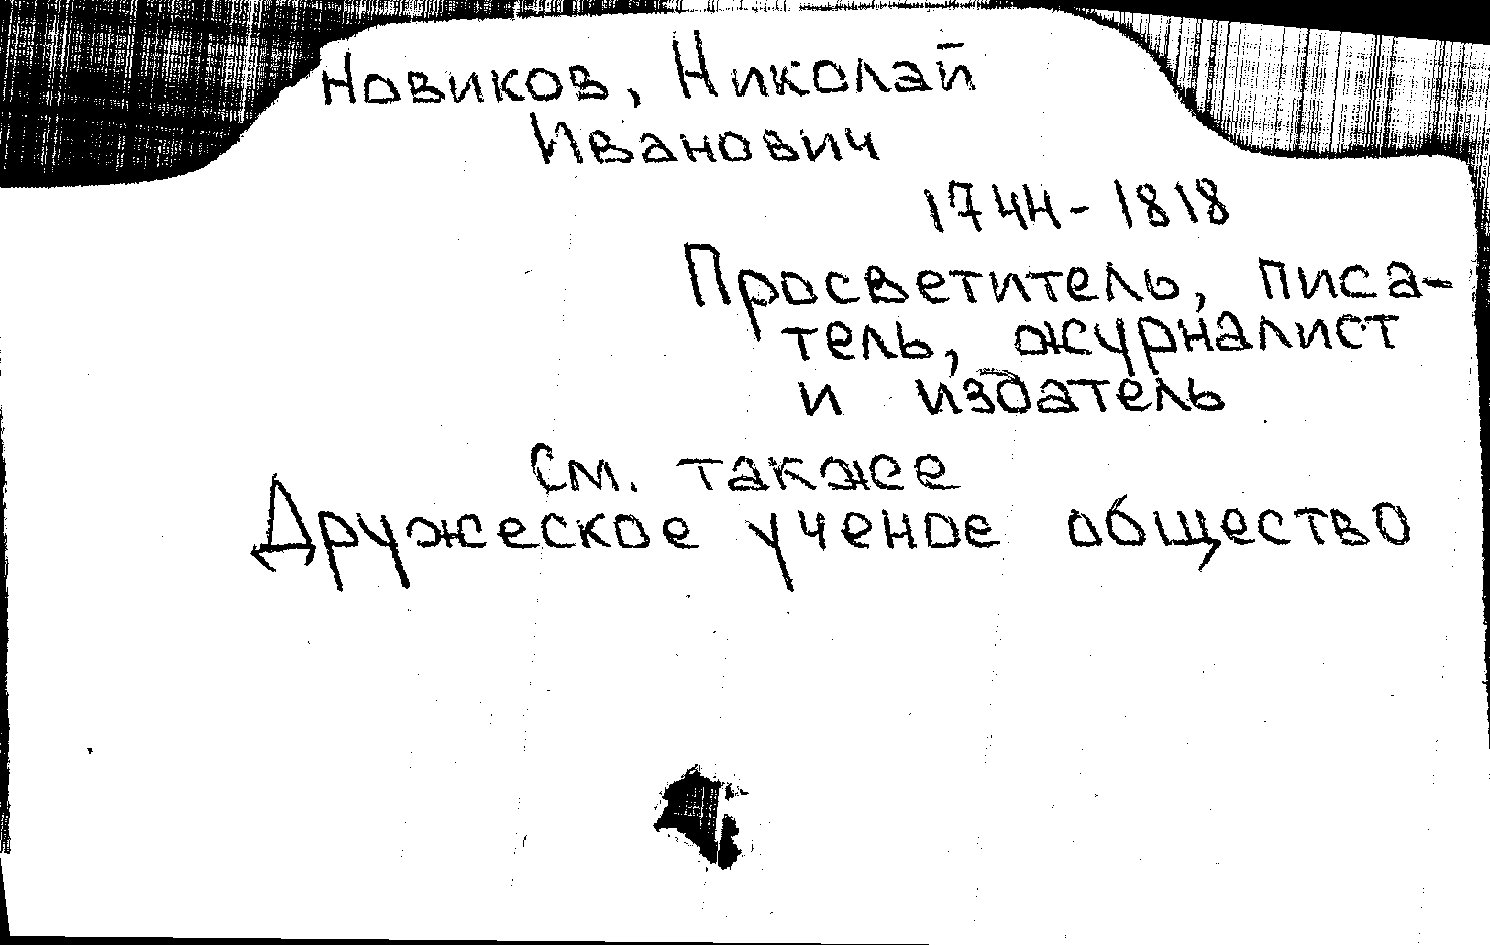 Новиков, Николай
Иванович
1744-1818
Просветитель, писа-
тель, журналист
и издатель
См. также
Дружеское ученое общество